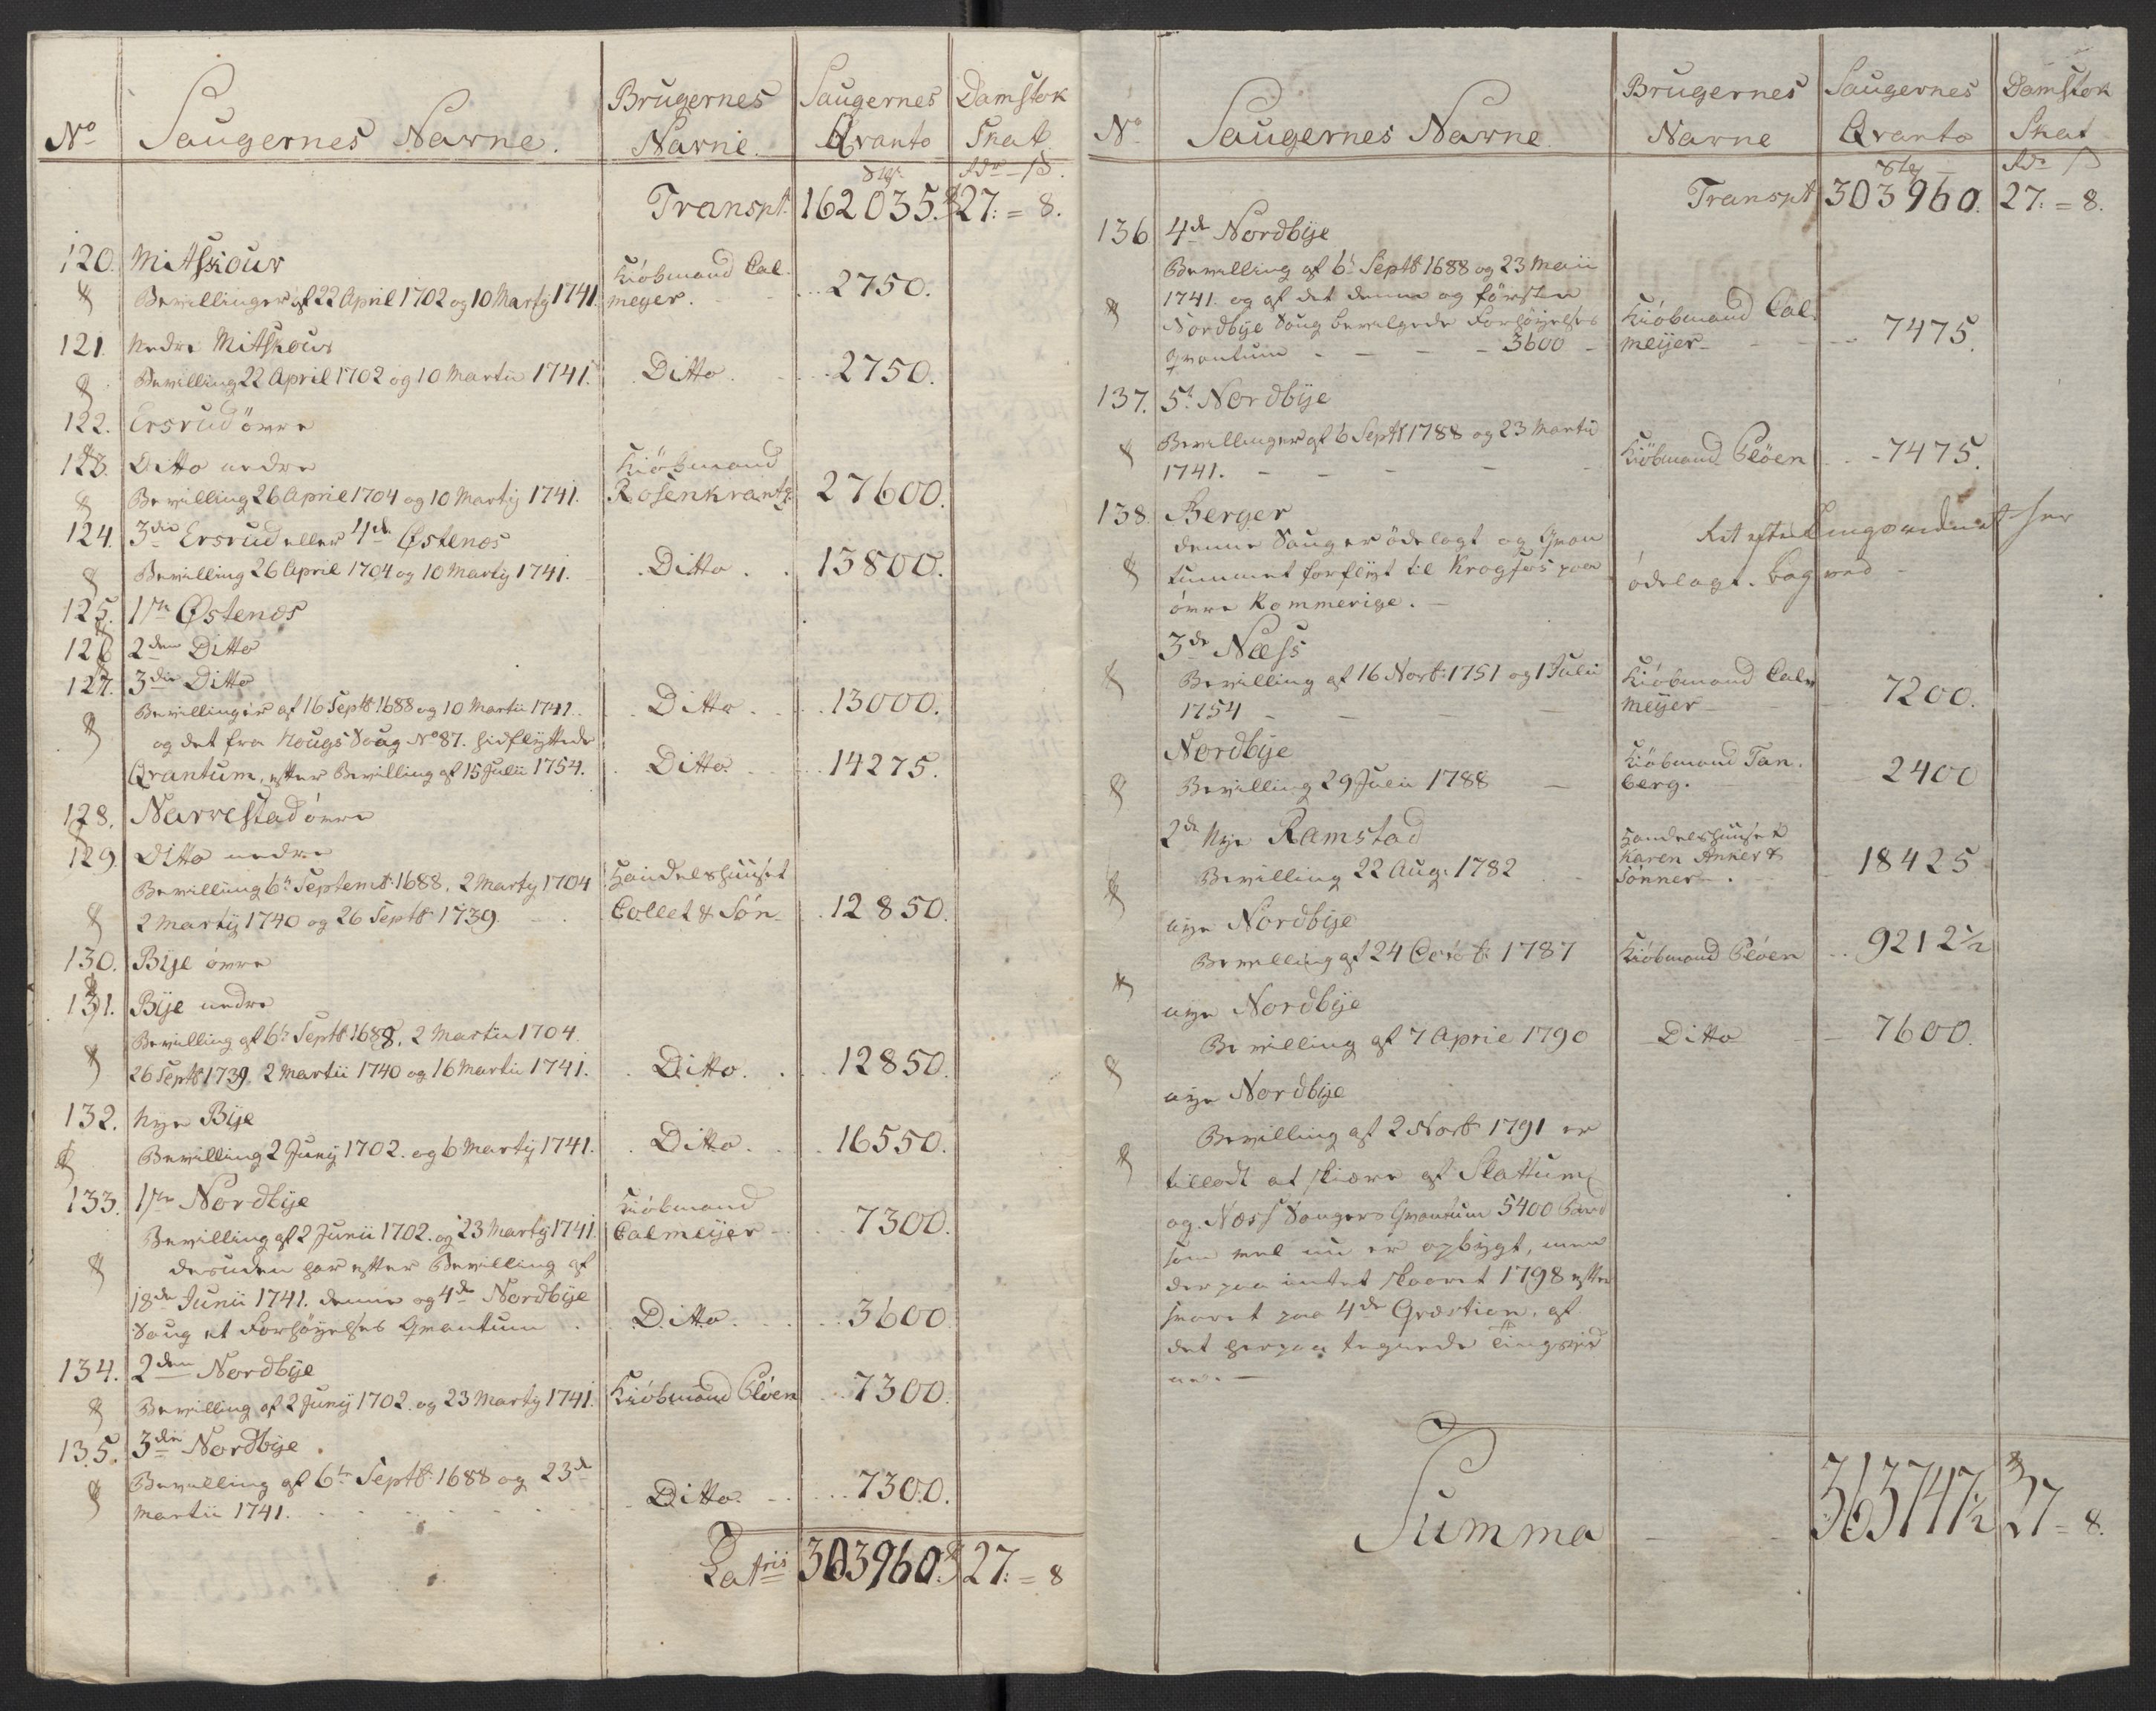 No Saugernes Navne. Brugernes Navne. Saugernes Qvanto Damstok Skat
Transpt. 162035. 27. = 8.
120. Mitskour
Bevillinger af 22 April 1702 og 10 Marty 1741. Kiöbmand Calmeyer. 2750.
121. Nedre Mitskour
Bevilling 22 April 1702 og 10 Martii 1741. Ditto. 2750.
122. Ersrud övre
123. Ditto nedre Kiöbmand
Bevilling 26 April 1704 og 10 Martij 1741. Rosenkrantz. 27600.
124. 3die Ersrud eller 4de Østenos
Bevilling 26 April 1704 og 10 Martij 1741. Ditto. 13800.
125. 1ste Østenos
126 2den Ditto
127. 3die Ditto
Bevillinger af 16 Septb 1688 og 10 Martii 1741. Ditto. 13000.
og det fra Hougs Saug No 87. hidflÿttede
Qvantum, efter Bevilling af 15 Julii 1754. Ditto. 14275.
128. Narrestad övre
129. Ditto nedre
Bevilling 6te Septemb: 1688. 2 Marty 1704 Handelshuuset
2 Martij 1740 og 26 Septb 1739. Collet & Sön 12850.
130. Bÿe övre
131. Bÿe nedre
Bevilling af 6te Septb 1688. 2 Martii 1704.
26 Septb 1739. 2 Martii 1740 og 16 Martii 1741. Ditto. 12850.
132. Nye Bÿe
Bevilling 2 Junÿ 1702. og 6 Martij 1741. Ditto. 16550.
133. 1ste Nordbÿe Kiöbmand
Bevilling af 2 Junii 1702. og 23 Martÿ 1741. Calmeÿer 7300.
desuden har efter Bevilling af
18de Junii 1741. denne og 4de Nordbÿe
Saug et Forhöyelses Qvantum. Ditto. 3600
134. 2den Nordbÿe
Bevilling af 2 Junÿ 1702. og 23 Martÿ 1741. Kiöbmand Plöen 7300.
135. 3die Nordbÿe.
Bevilling af 6te Septb: 1688 og 23de
Martii 1741. Ditto. 7300.
Latris 303960. 27. = 8
No Saugernes Navne Brugernes Navne Saugernes Qvanto Damstok Skat
Transpt 303960. 27. = 8.
136 4de Nordbÿe
Bevilling af 6te Septb 1688 og 23 Maii
1741. og af det denne og förste
Nordbÿe Saug bevilgede Forhöyelses
Qvantum 3600 Kiöbmand Calmeÿer 7475.
137. 5te Nordbÿe
Bevillinger af 6 Septb 1788 og 23 Martii
1741. Kiöbmand Plöen 7475.
138. Berger
denne Saug er ödelagt og Qvantummet forflÿt til Krogfos paa
övre Rommerige.
ödelagt. bag ved
3de Næss
Bevilling af 16 Novb: 1751 og 1 Julii
1754 Kiöbmand Calmeÿer 7200.
Nordbÿe
Bevilling 29 Julii 1788 Kiöbmand Tanberg. 2400
2de Nÿe Ramstad
Bevilling 22 Aug: 1782 Handelshuuset Karen Anker & Sönner. 18425
nÿe Nordbÿe
Bevilling af 24 Octob: 1787 Kiöbmand Plöen 9212½
nÿe Nordbÿe
Bevilling af 7 April 1790 Ditto 7600.
nÿe Nordbÿe
Bevilling af 2 Novb 1791 er
tilladt at skiære af Skattum
og Næss Sauger Qvantum 5400 Bord
som vel nu er opbÿgt, men
derpaa intet skaaret 1798 efter
svaret paa 4de Qvæstion, af
det herpaa tegnede Tingsvidne.
Summa 363747½ 27 = 8.